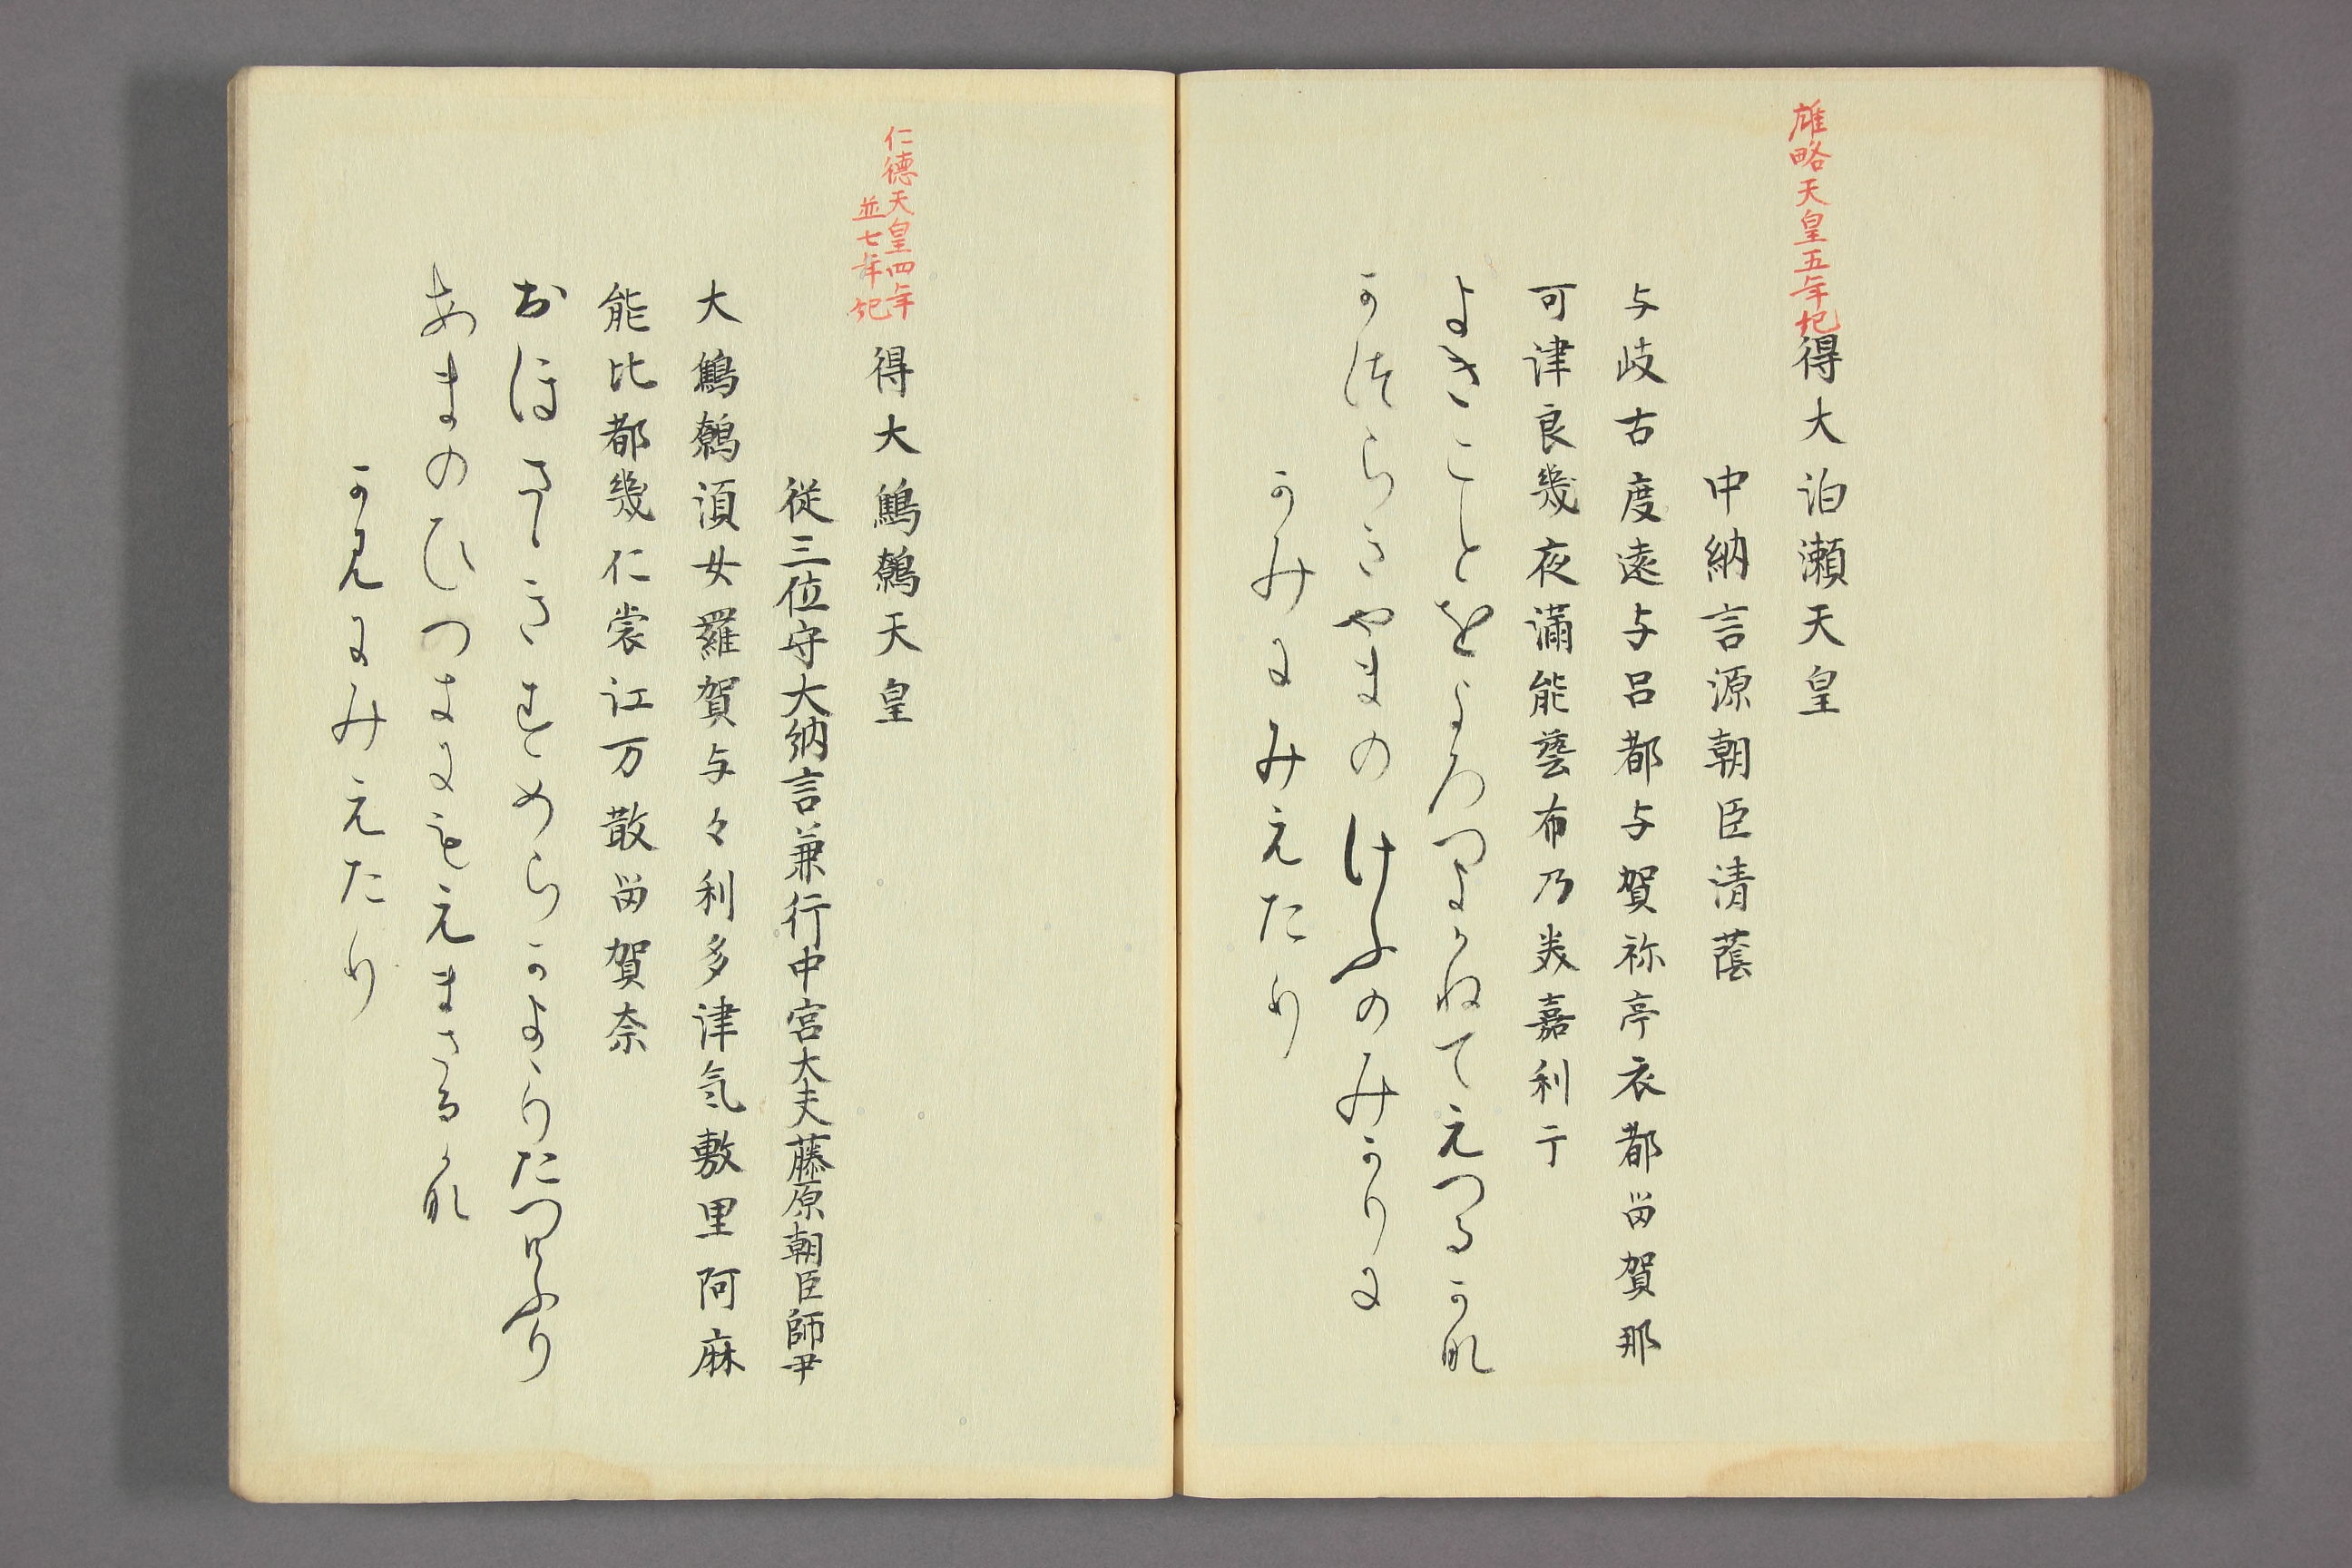 雄略天皇五年紀
得大泊瀬天皇
中納言源朝臣清蔭
与岐古度遠与呂都与賀祢亭衣都畄賀那
可津良幾夜滿能藝布乃美嘉利亍
よきことをよろつよかねてえつるかな
かつらきやまのけふのみかりに
かみにみえたり
仁德天皇四年
並七年紀
得大鷦鷯天皇
從三位守大納言兼行中宮大夫藤原朝臣師尹
大鷦鷯湏女羅賀与々利多津氣敷里阿麻
能比都幾仁裳江万散畄賀奈
おほさゝきすめらかよゝりたつけふり
あまのひつきにもえまさるかな
か見にみえたり